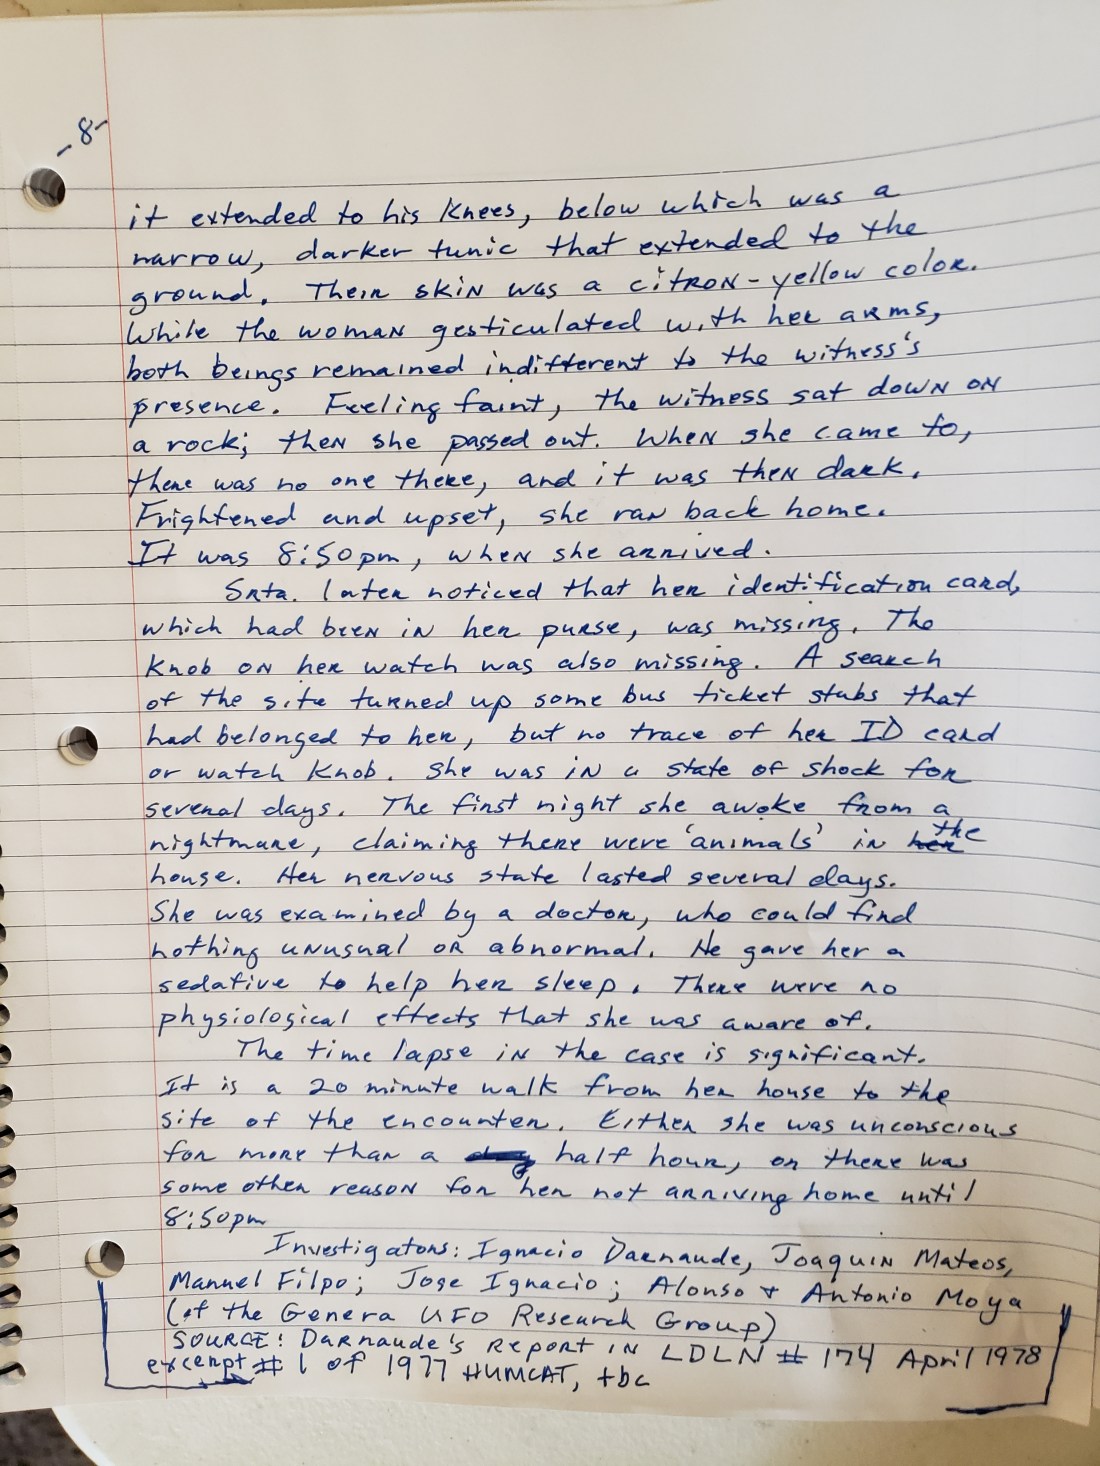 -8-
it extended to his knees, below which was a
narrow, darker tunic that extended to the
ground. Their skin was a citron-yellow color.
While the woman gesticulated with her arms,
both beings remained indifferent to the witness's
presence. Feeling faint, the witness sat down on
a rock; then she passed out. When she came to,
there was no one there, and it was then dark.
Frightened and upset, she ran back home.
It was 8:50pm, when she arrived.
Srta. later noticed that her identification card,
which had been in her purse, was missing. The
knob on her watch was also missing. A search
of the site turned up some bus ticket stubs that
had belonged to her, but no trace of her ID card
or watch knob. She was in a state of shock for
several days. The first night she awoke from a
nightmare, claiming there were 'animals' in her the
house. Her nervous state lasted several days.
She was examined by a doctor, who could find
nothing unusual or abnormal. He gave her a
sedative to help her sleep. There were no
physiological effects that she was aware of.
The time lapse in the case is significant.
It is a 20 minute walk from her house to the
site of the encounter. Either she was unconscious
for more than a half hour, or there was
some other reason for her not arriving home until
8:50pm
Investigators: Ignacio Darnaude, Joaquin Mateos,
Manuel Filpo; Jose Ignacio; Alonso & Antonio Moya
(of the Genera UFO Research Group)
SOURCE: Darnaude's Report in LDLN # 174 April 1978
excerpt # 1 of 1977 HUMCAT, tbc